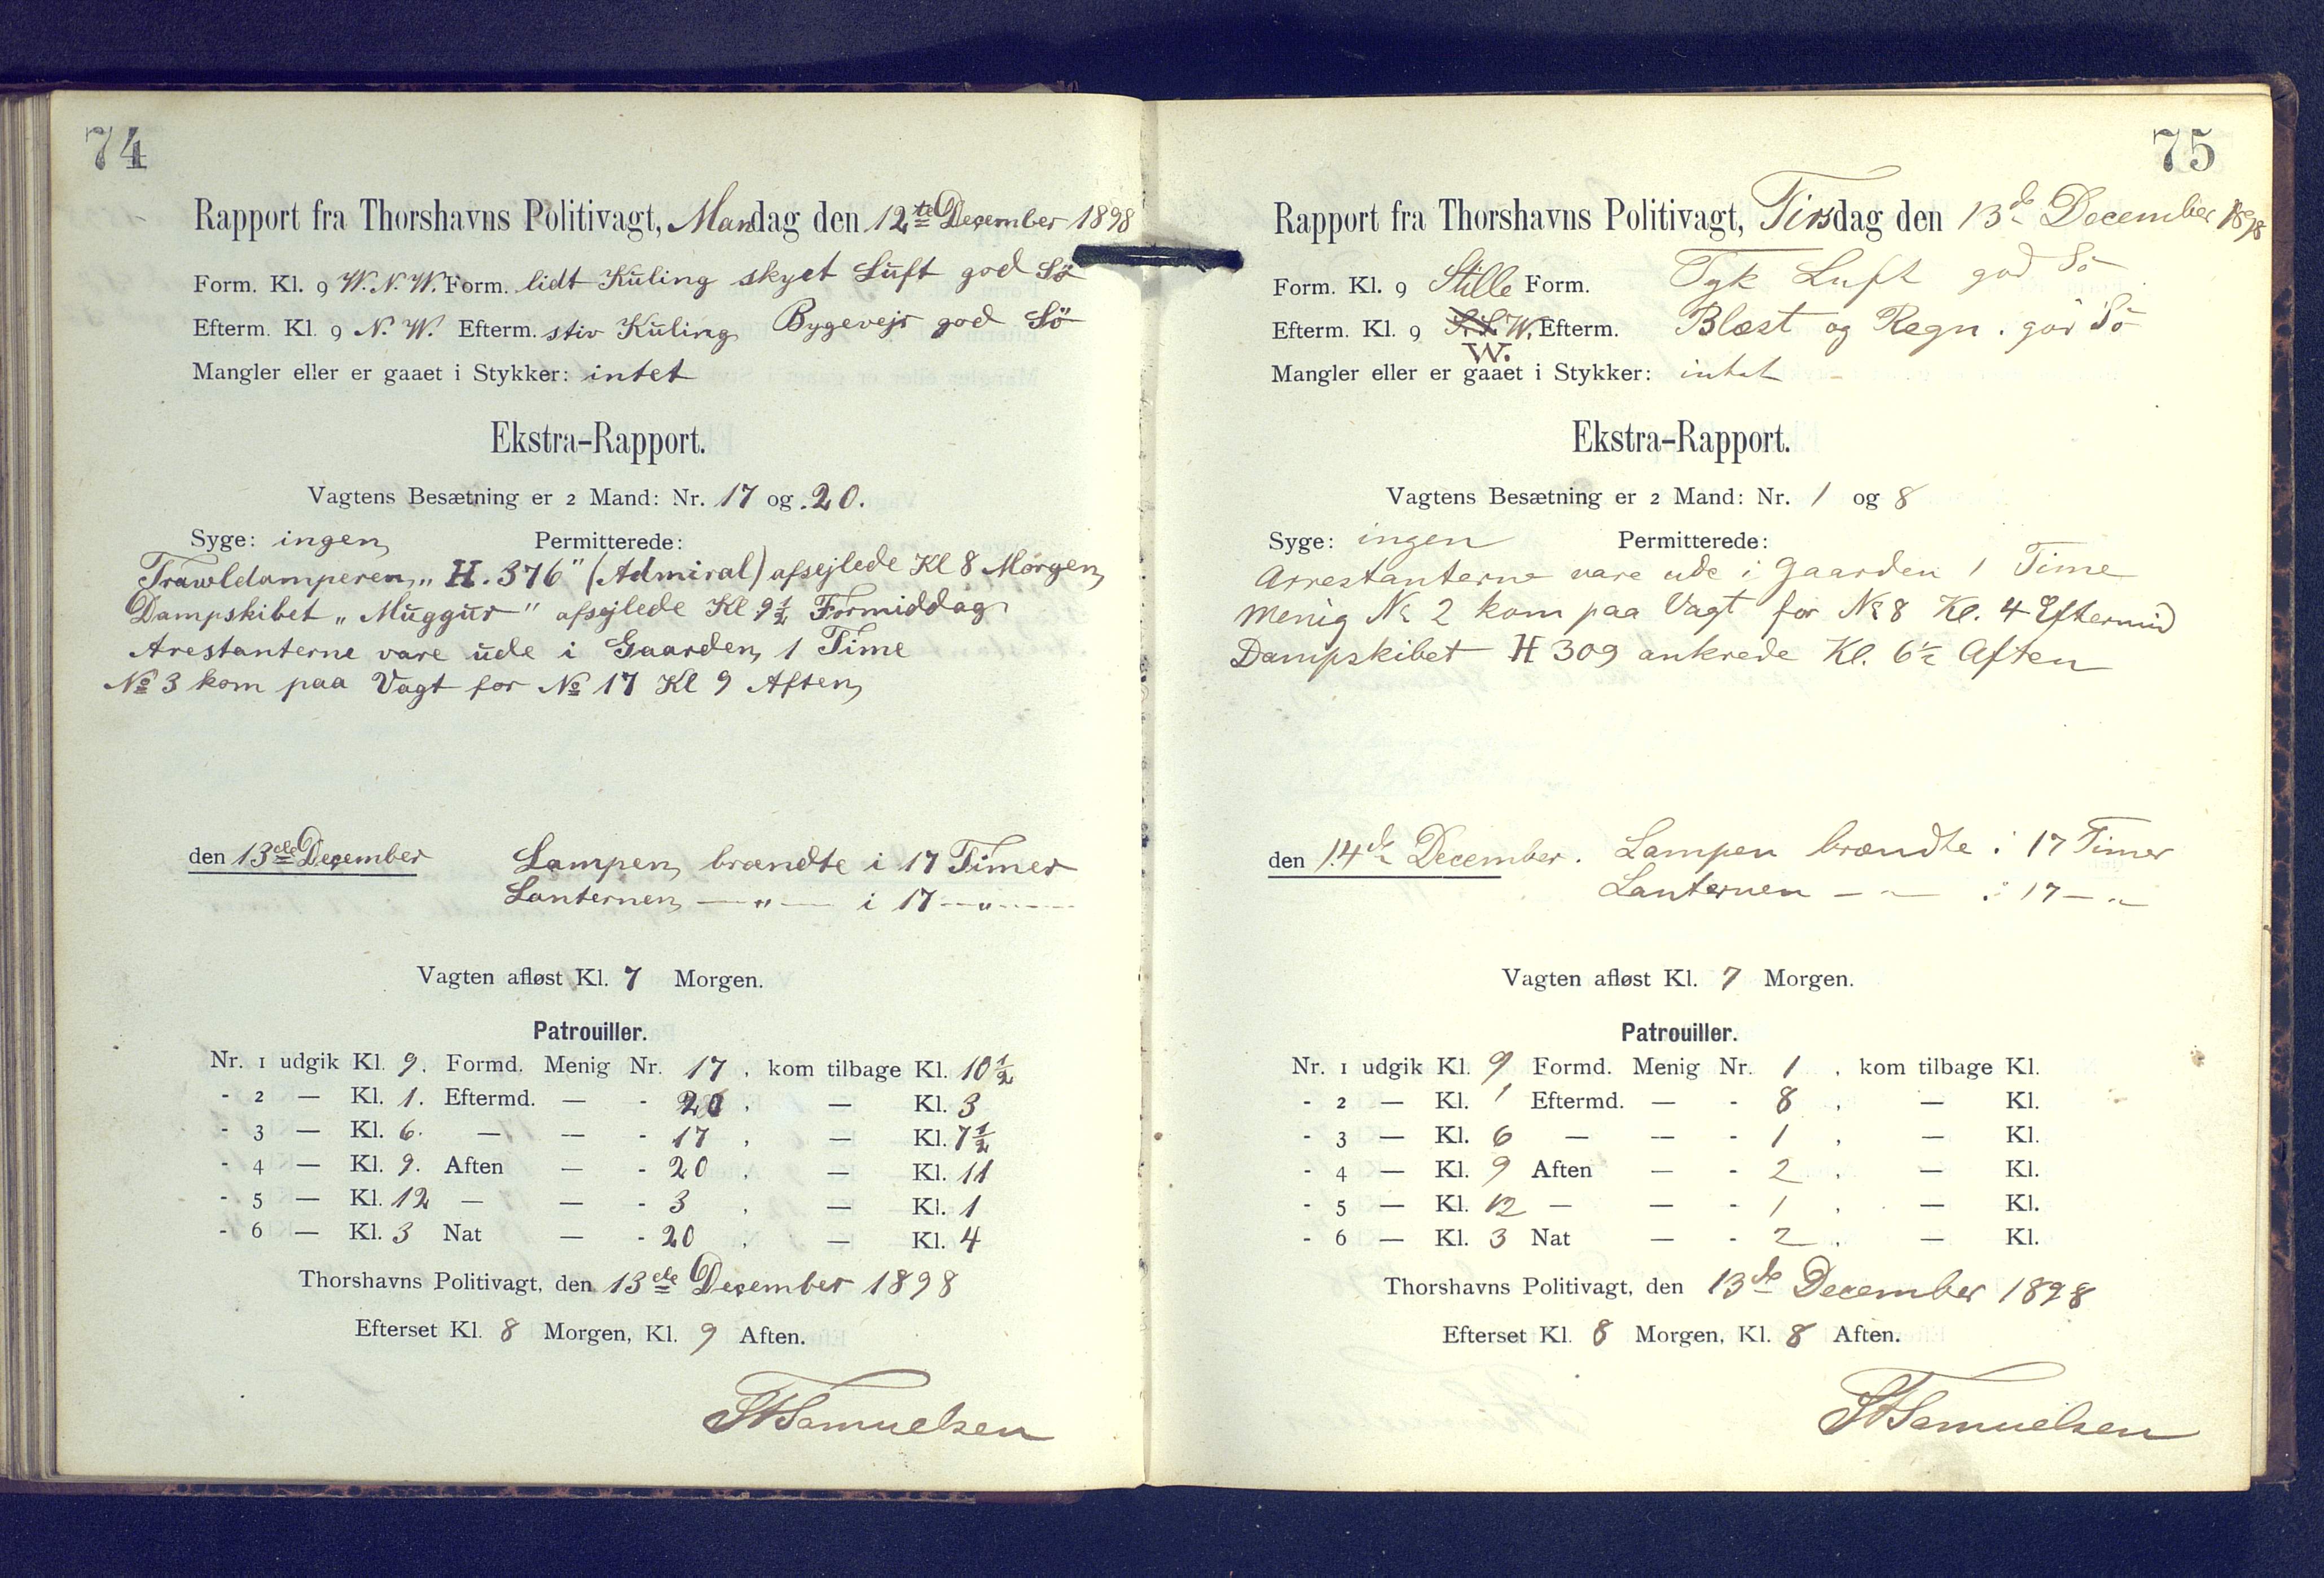 74
Rapport fra Thorshavns Politivagt, Mandag den 12te December 1898
Form. Kl. 9 W.N.W. Form. lidt Kuling skyet Luft god Sö
Efterm. Kl. 9 N.W. Efterm. stiv Kuling Bygevejr god Sö
Mangler eller er gaaet i Stykker: intet
Ekstra-Rapport.
Vagtens Besætning er 2 Mand: Nr. 17 og 20.
Syge: ingen Permitterede:
Trawldamperen „H. 376" (Admiral) afsejlede Kl 8 Morgen
Dampskibet „Muggur" afsejlede Kl 9½ Formiddag
Arestanterne vare ude i Gaarden 1 Time
№ 3 kom paa Vagt for № 17 Kl 9 Aften
den 13de December Lampen brændte i 17 Timer
Lanternen — " — i 17 — " —
Vagten afløst Kl. 7 Morgen.
Patrouiller.
Nr. 1 udgik Kl. 9. Formd. Menig Nr. 17, kom tilbage Kl. 10½
- 2 — Kl. 1. Eftermd. — - 20, — Kl. 3
- 3 — Kl. 6. — — - 17, — Kl. 7½
- 4 — Kl. 9. Aften — - 20, — Kl. 11
- 5 — Kl. 12 — — - 3, — Kl. 1
- 6 — Kl. 3 Nat — - 20, — Kl. 4
Thorshavns Politivagt, den 13de December 1898
Efterset Kl. 8 Morgen, Kl. 9 Aften.
Samuelsen
75
Rapport fra Thorshavns Politivagt, Tirsdag den 13de December 1898
Form. Kl. 9 Stille Form. Tyk Luft god Sö
Efterm. Kl. 9 W. Efterm. Blæst og Regn. god Sö
W.
Mangler eller er gaaet i Stykker: intet
Ekstra-Rapport.
Vagtens Besætning er 2 Mand: Nr. 1 og 8
Syge: ingen Permitterede:
Arrestanterne vare ude i Gaarden 1 Time
Menig Nr 2 kom paa Vagt for Nr 8 Kl. 4 Eftermid
Dampskibet H 309 ankrede Kl. 6½ Aften
den 14de December. Lampen brændte i 17 Timer
Lanternen — " — i 17 — "
Vagten afløst Kl. 7 Morgen.
Patrouiller.
Nr. 1 udgik Kl. 9 Formd. Menig Nr. 1, kom tilbage Kl.
- 2 — Kl. 1 Eftermd. — - 8, — Kl.
- 3 — Kl. 6 — — - 1, — Kl.
- 4 — Kl. 9 Aften — - 2, — Kl.
- 5 — Kl. 12 — — - 1, — Kl.
- 6 — Kl. 3 Nat — - 2, — Kl.
Thorshavns Politivagt, den 13de December 1898
Efterset Kl. 8 Morgen, Kl. 8 Aften.
Samuelsen